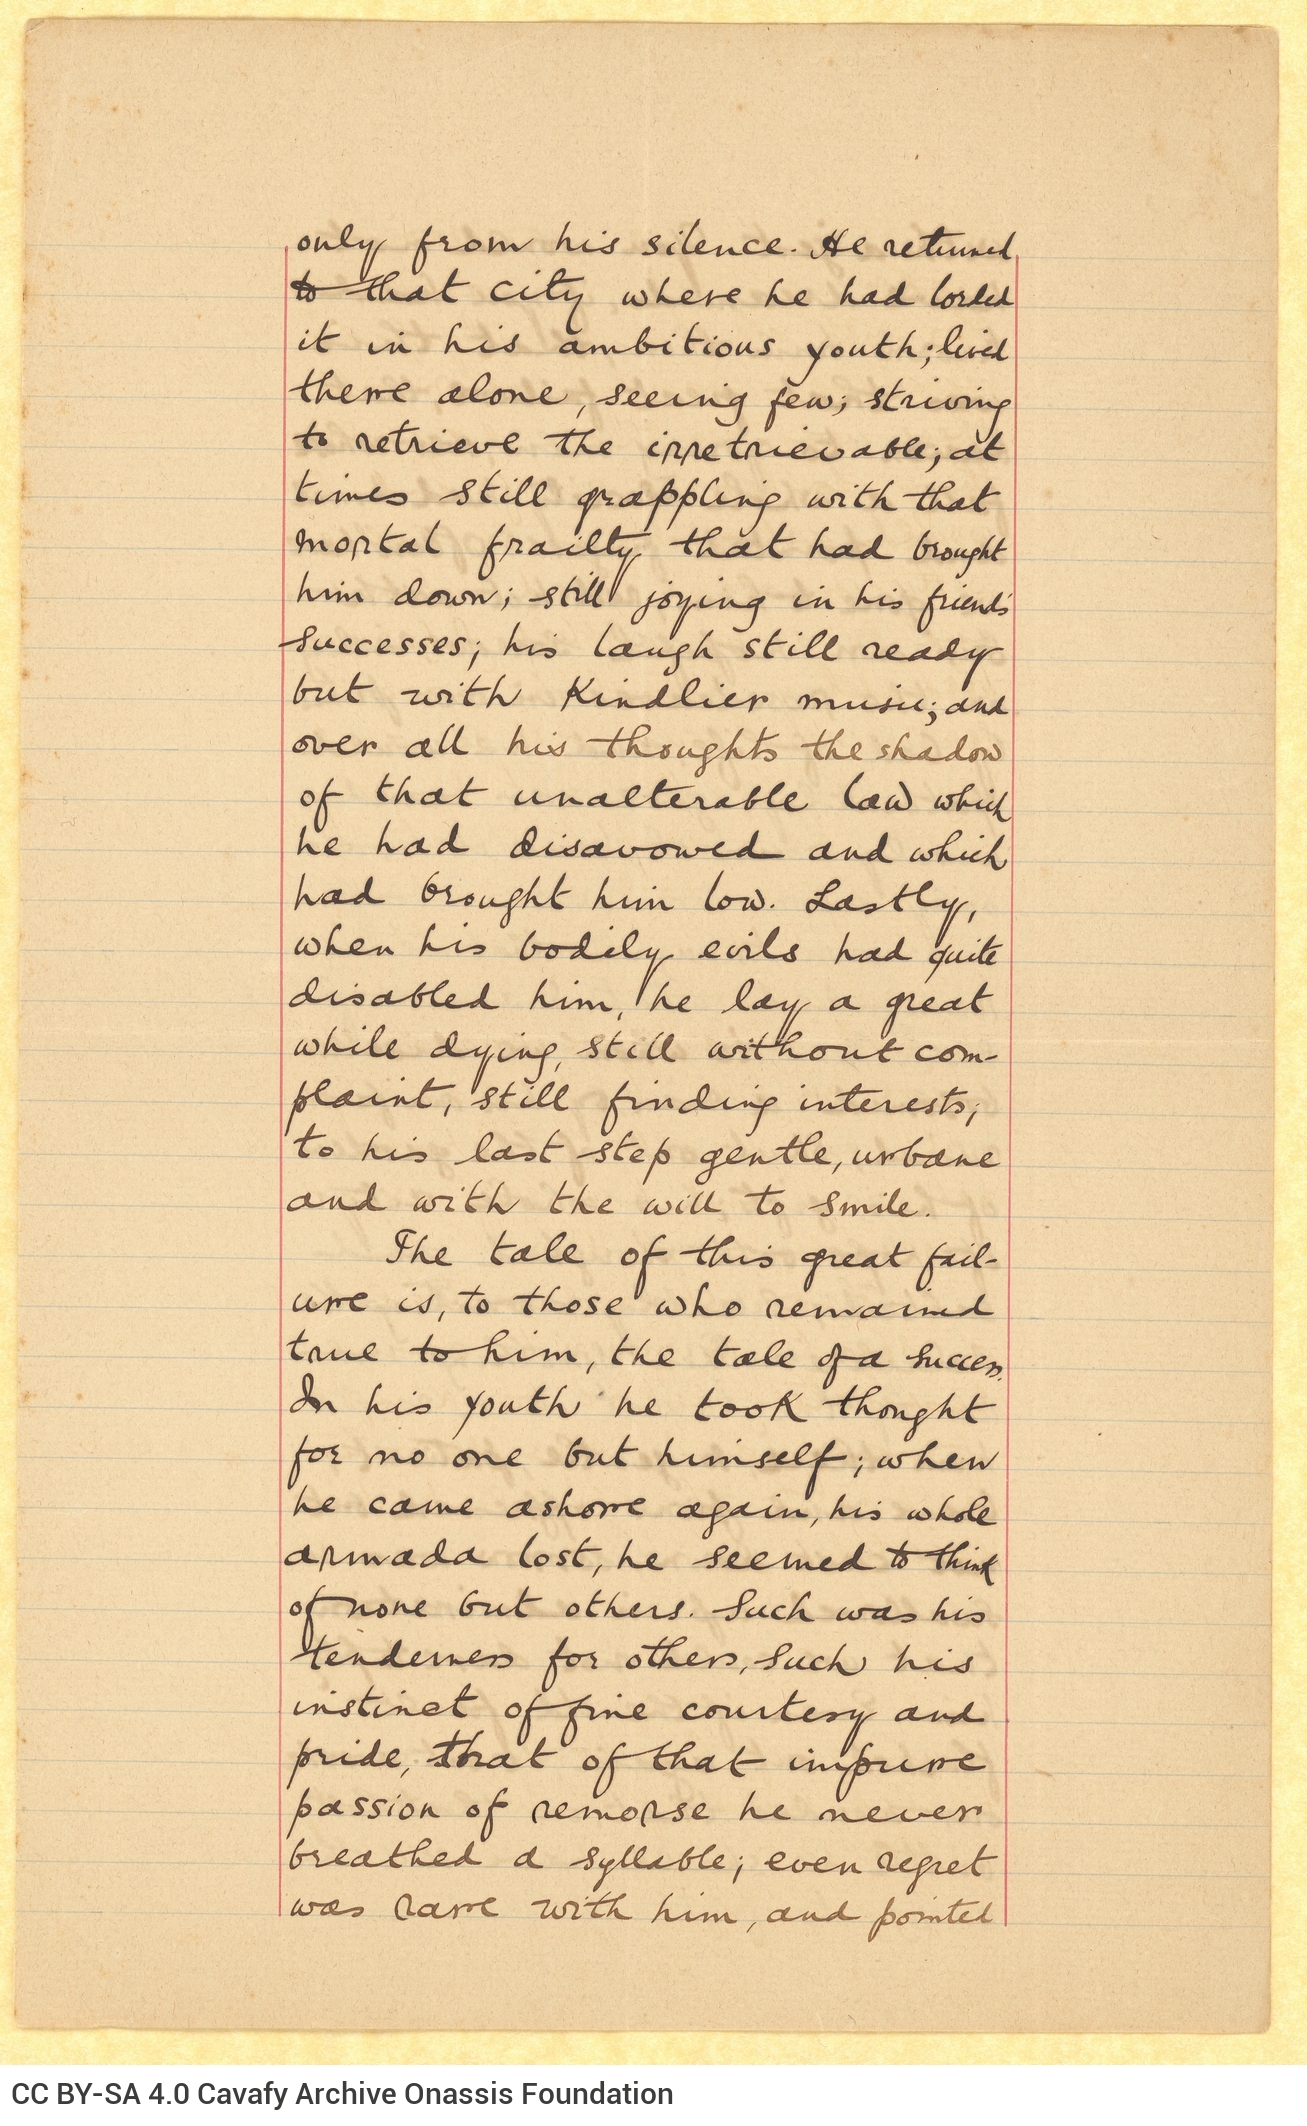 only from his silence. He returned
to that city where he had lorded
it in his ambitious youth; lived
there alone, seeing few; striving
to retrieve the irretrievable; at
times still grappling with that
mortal frailty that had brought
him down; still joying in his friend's
successes; his laugh still ready
but with kindlier music; and
over all his thoughts the shadow
of that unalterable law which
he had disavowed and which
had brought him low. Lastly,
when his bodily evils had quite
disabled him, he lay a great
while dying, still without com-
plaint, still finding interests;
to his last step gentle, urbane
and with the will to smile.
The tale of this great fail-
ure is, to those who remained
true to him, the tale of a success.
In his youth he took thought
for no one but himself; when
he came ashore again, his whole
armada lost, he seemed to think
of none but others. Such was his
tenderness for others, such his
instinct of fine courtesy and
pride, that of that impure
passion of remorse he never
breathed a syllable; even regret
was rare with him, and pointed
CC BY-SA 4.0 Cavafy Archive Onassis Foundation